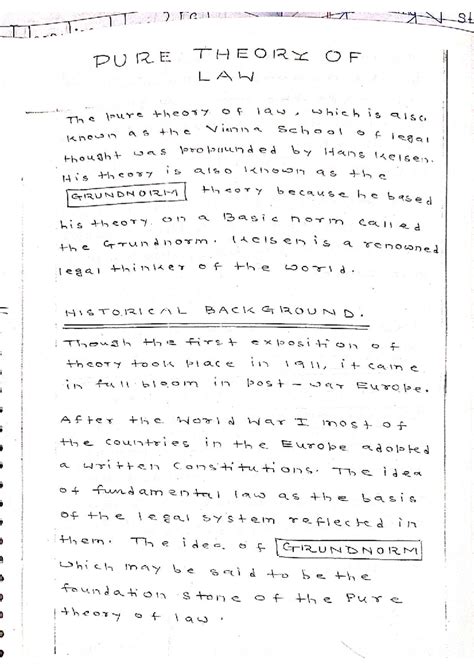 PURE THEORY OF
LAW
The pure theory of law, which is also
known as the Vimna School of legal
thought was propounded by Hans Kelsen.
His theory is also known as the
GRUNDNORM theory because he based
his theory on a Basic norm called
the Grundnorm. Kelsen is a renowned
legal thinker of the world.
HISTORICAL BACKGROUND.
Though the first exposition of
theory took place in 1911, it came
in full bloom in post - war Europe.
After the World War I most of
the countries in the Europe adopted
a written Constitutions. The idea
of fundamental law as the basis
of the legal system reflected in
them. The idea of GRUNDNORM
which may be said to be the
foundation stone of the Pure
theory of law.